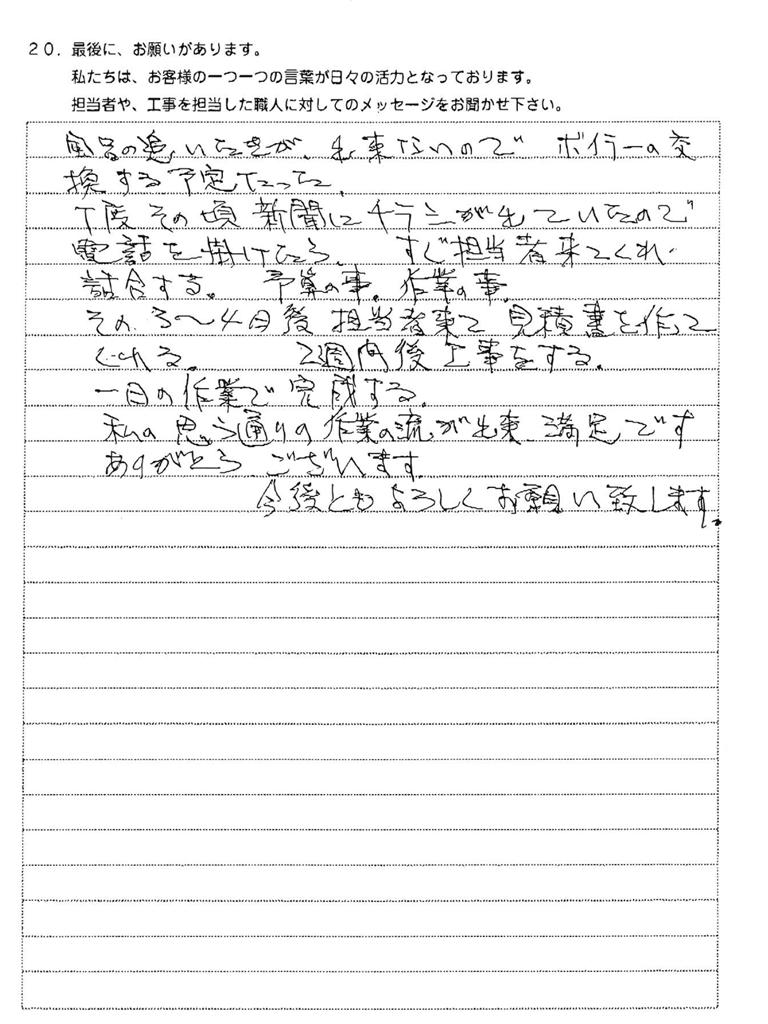 20. 最後に、お願いがあります。
私たちは、お客様の一つ一つの言葉が日々の活力となっております。
担当者や、工事を担当した職人に対してのメッセージをお聞かせ下さい。
風呂の追いだきが、出来ないので ボイラーの交
換する予定だった。
丁度その頃新聞にチラシが出ていたので
電話を掛けたら、 すぐ担当者来てくれ
話合する。 予算の事、作業の事、
その3〜4日後担当者来て見積書を作って
くれる。 2週間後工事をする。
一日の作業で完成する。
私の思う通りの作業の流が出来、満足です
ありがとうございます。
今後ともよろしくお願い致します。